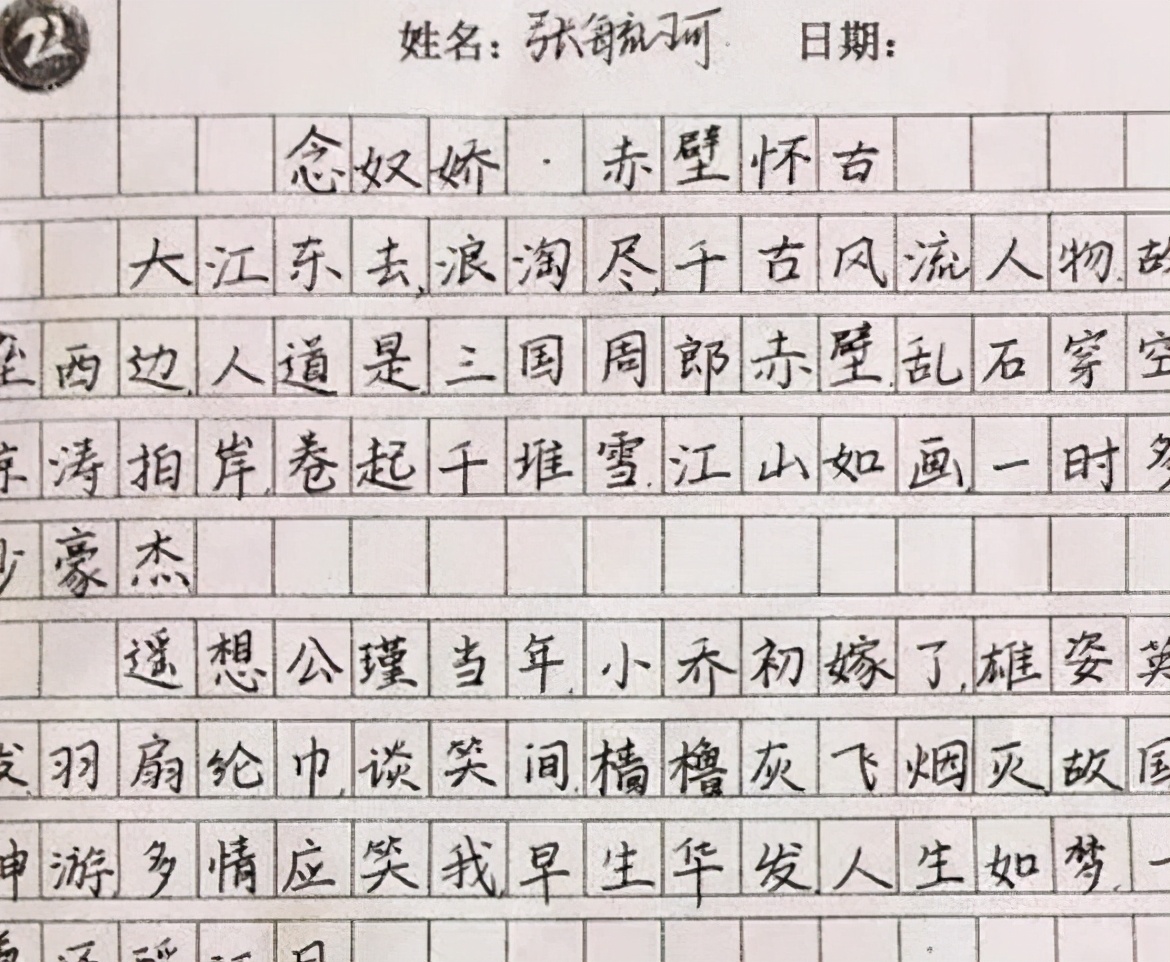 姓名：张毓珂 日期：
念奴娇·赤壁怀古
大江东去,浪淘尽,千古风流人物.故
垒西边,人道是,三国周郎赤壁.乱石穿空
惊涛拍岸,卷起千堆雪.江山如画,一时多
少豪杰
遥想公瑾当年,小乔初嫁了,雄姿英
发,羽扇纶巾,谈笑间,樯橹灰飞烟灭.故国
神游,多情应笑我,早生华发.人生如梦,一